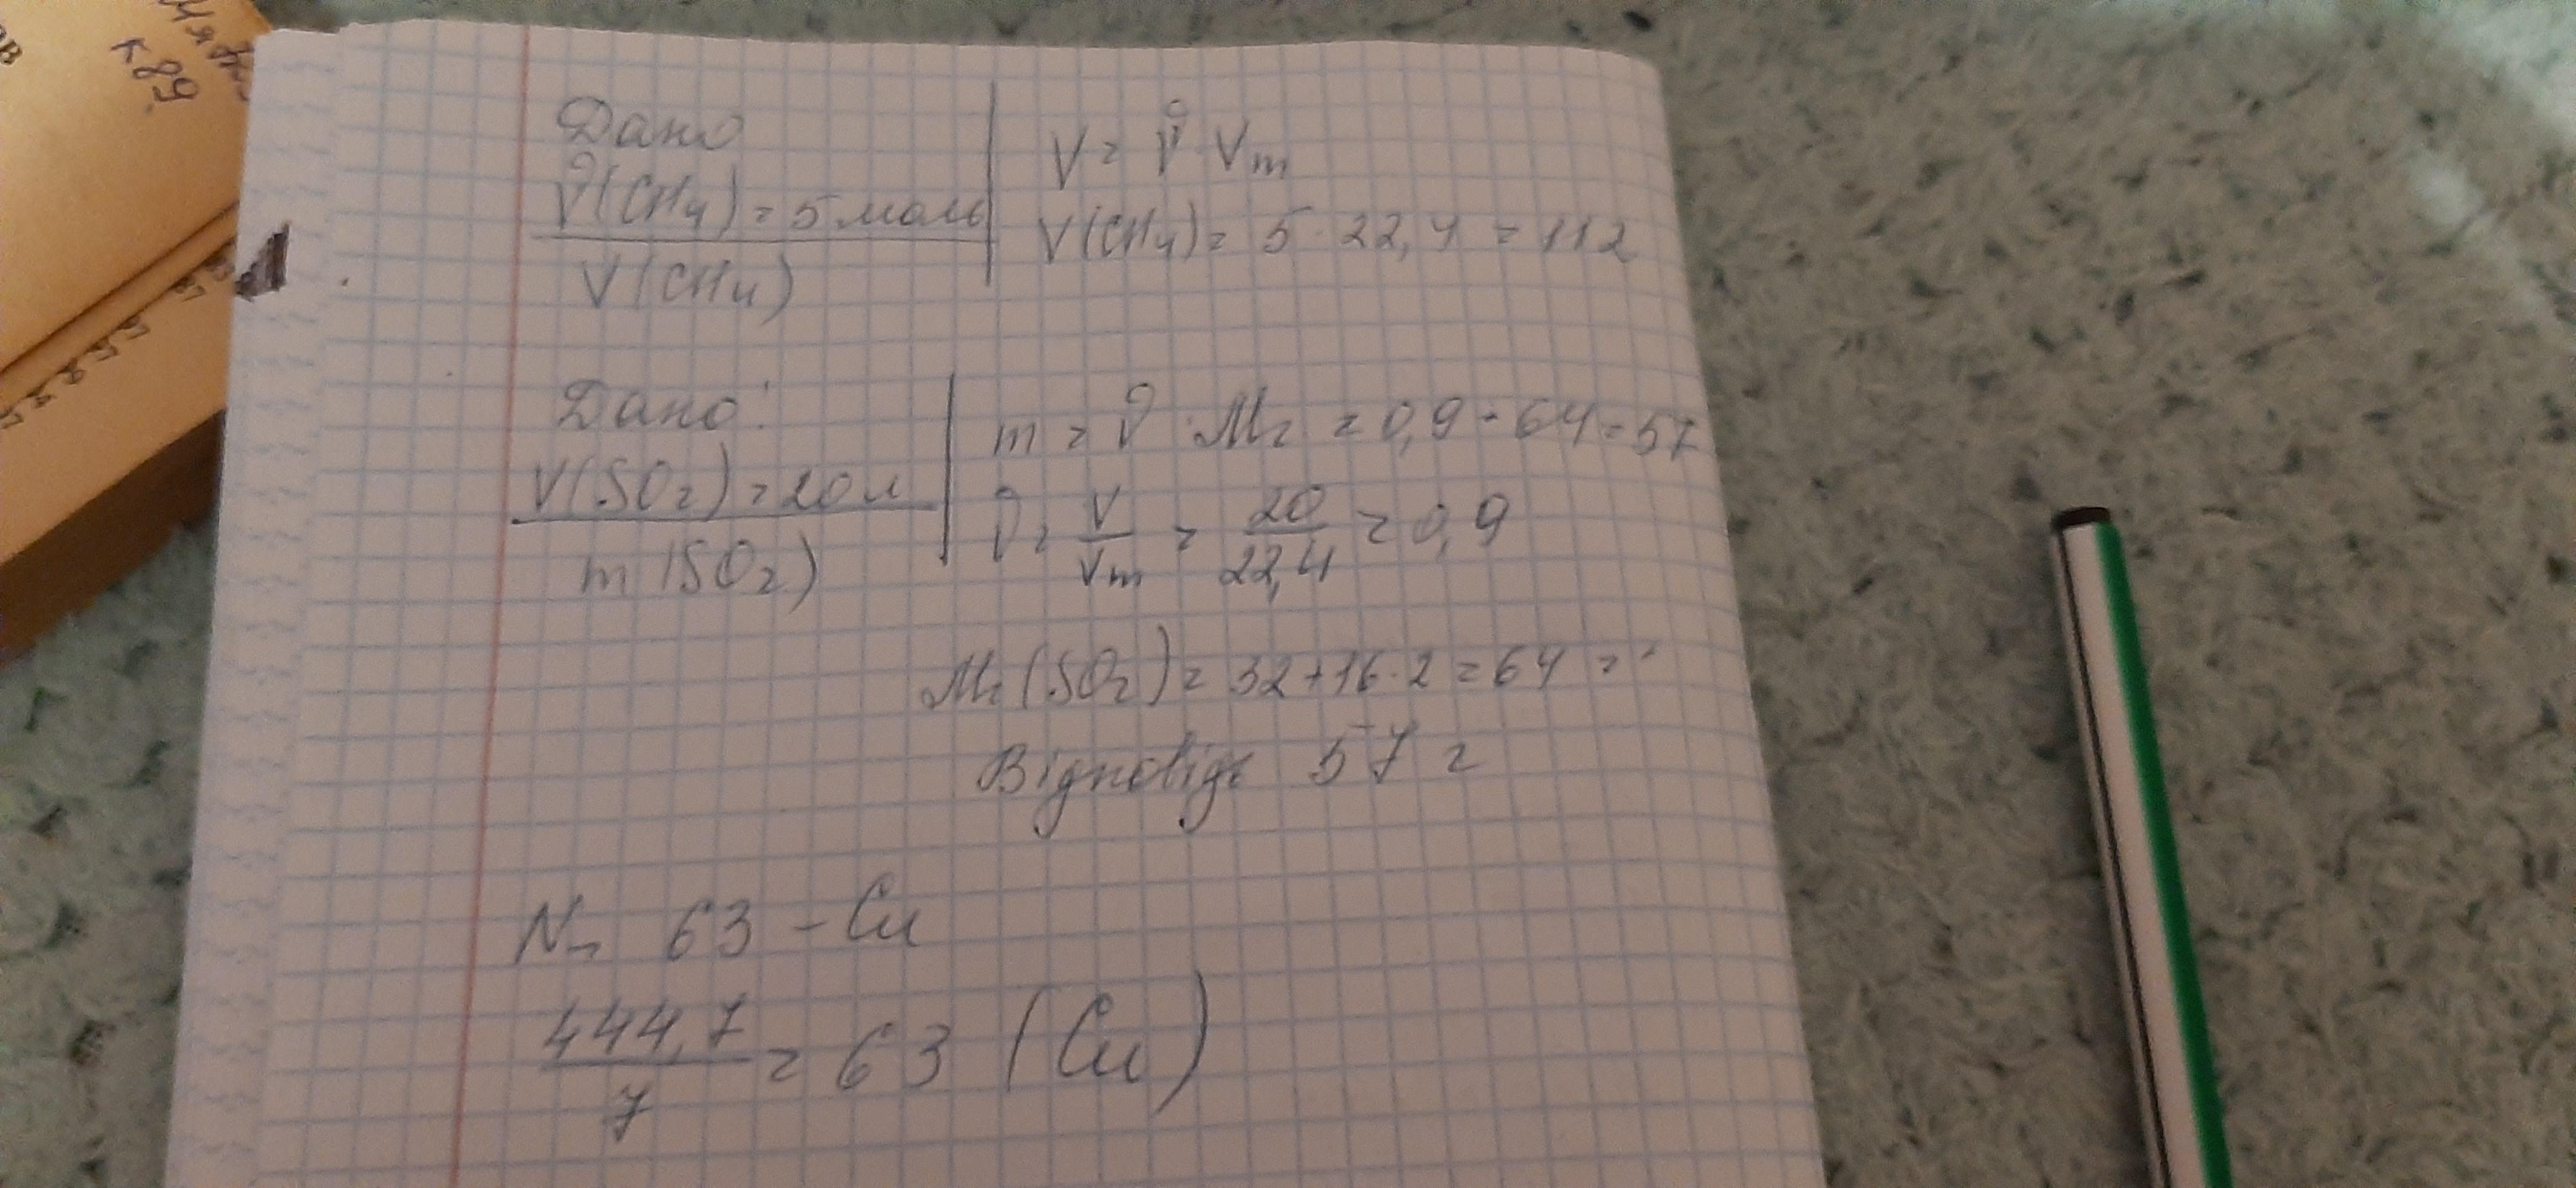 к 89
Дано
ν(CH₄) = 5 моль
V(CH₄)
V = ν · Vm
V(CH₄) = 5 · 22,4 = 112
Дано:
V(SO₂) = 20 л
m(SO₂)
m = ν · Mr = 0,9 · 64 = 57
ν = V/Vm = 20/22,4 = 0,9
Mr(SO₂) = 32 + 16 · 2 = 64 =
Відповідь 57 г
63 - Cu
444,7/7 = 63 (Cu)